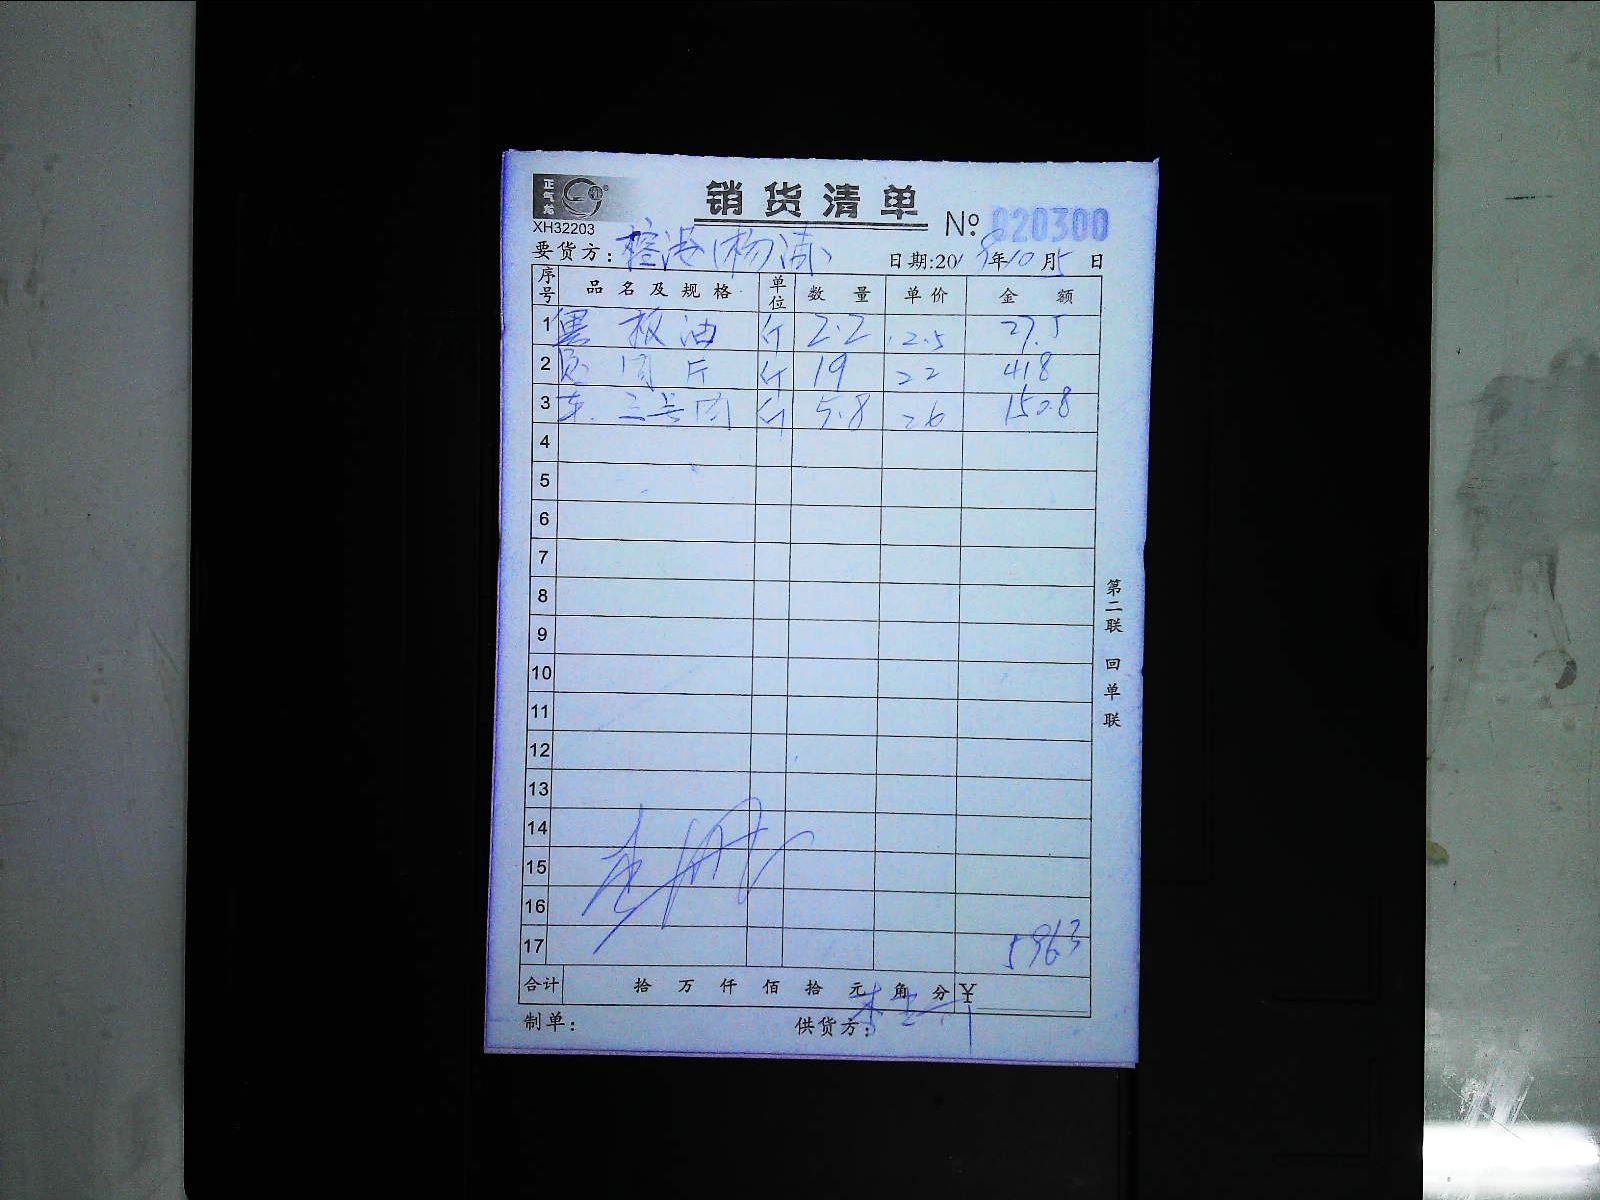 正气龙
XH32203
销货清单
No. 020300
要货方: 榕港(杨涛)
日期:2019年10月5日
序号 品名及规格 单位 数量 单价 金额
1 板油 斤 2.2 12.5 27.5
2 肉片 斤 19 22 418
3 三号肉 斤 5.8 26 150.8
4
5
6
7
8
9
10
11
12
13
14
15
16
17 5963
合计 拾 万 仟 佰 拾 元 角 分 ¥
制单: 供货方:
第二联 回单联